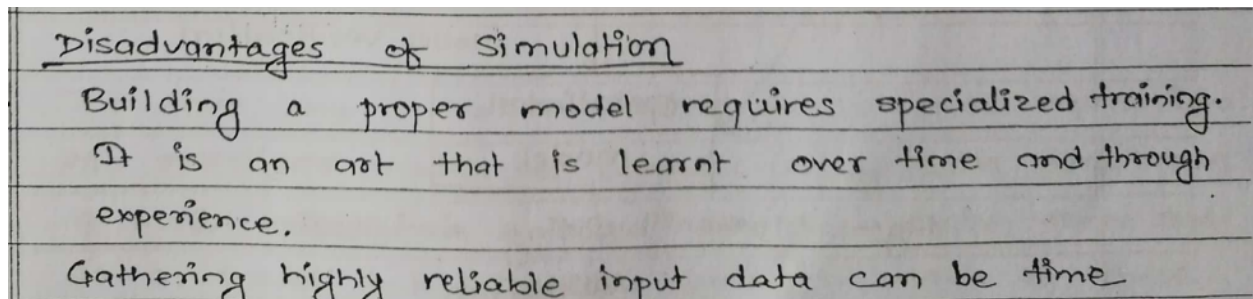 Disadvantages of simulation
Building a proper model requires specialized training.
It is an art that is learnt over time and through
experience.
Gathering highly reliable input data can be time